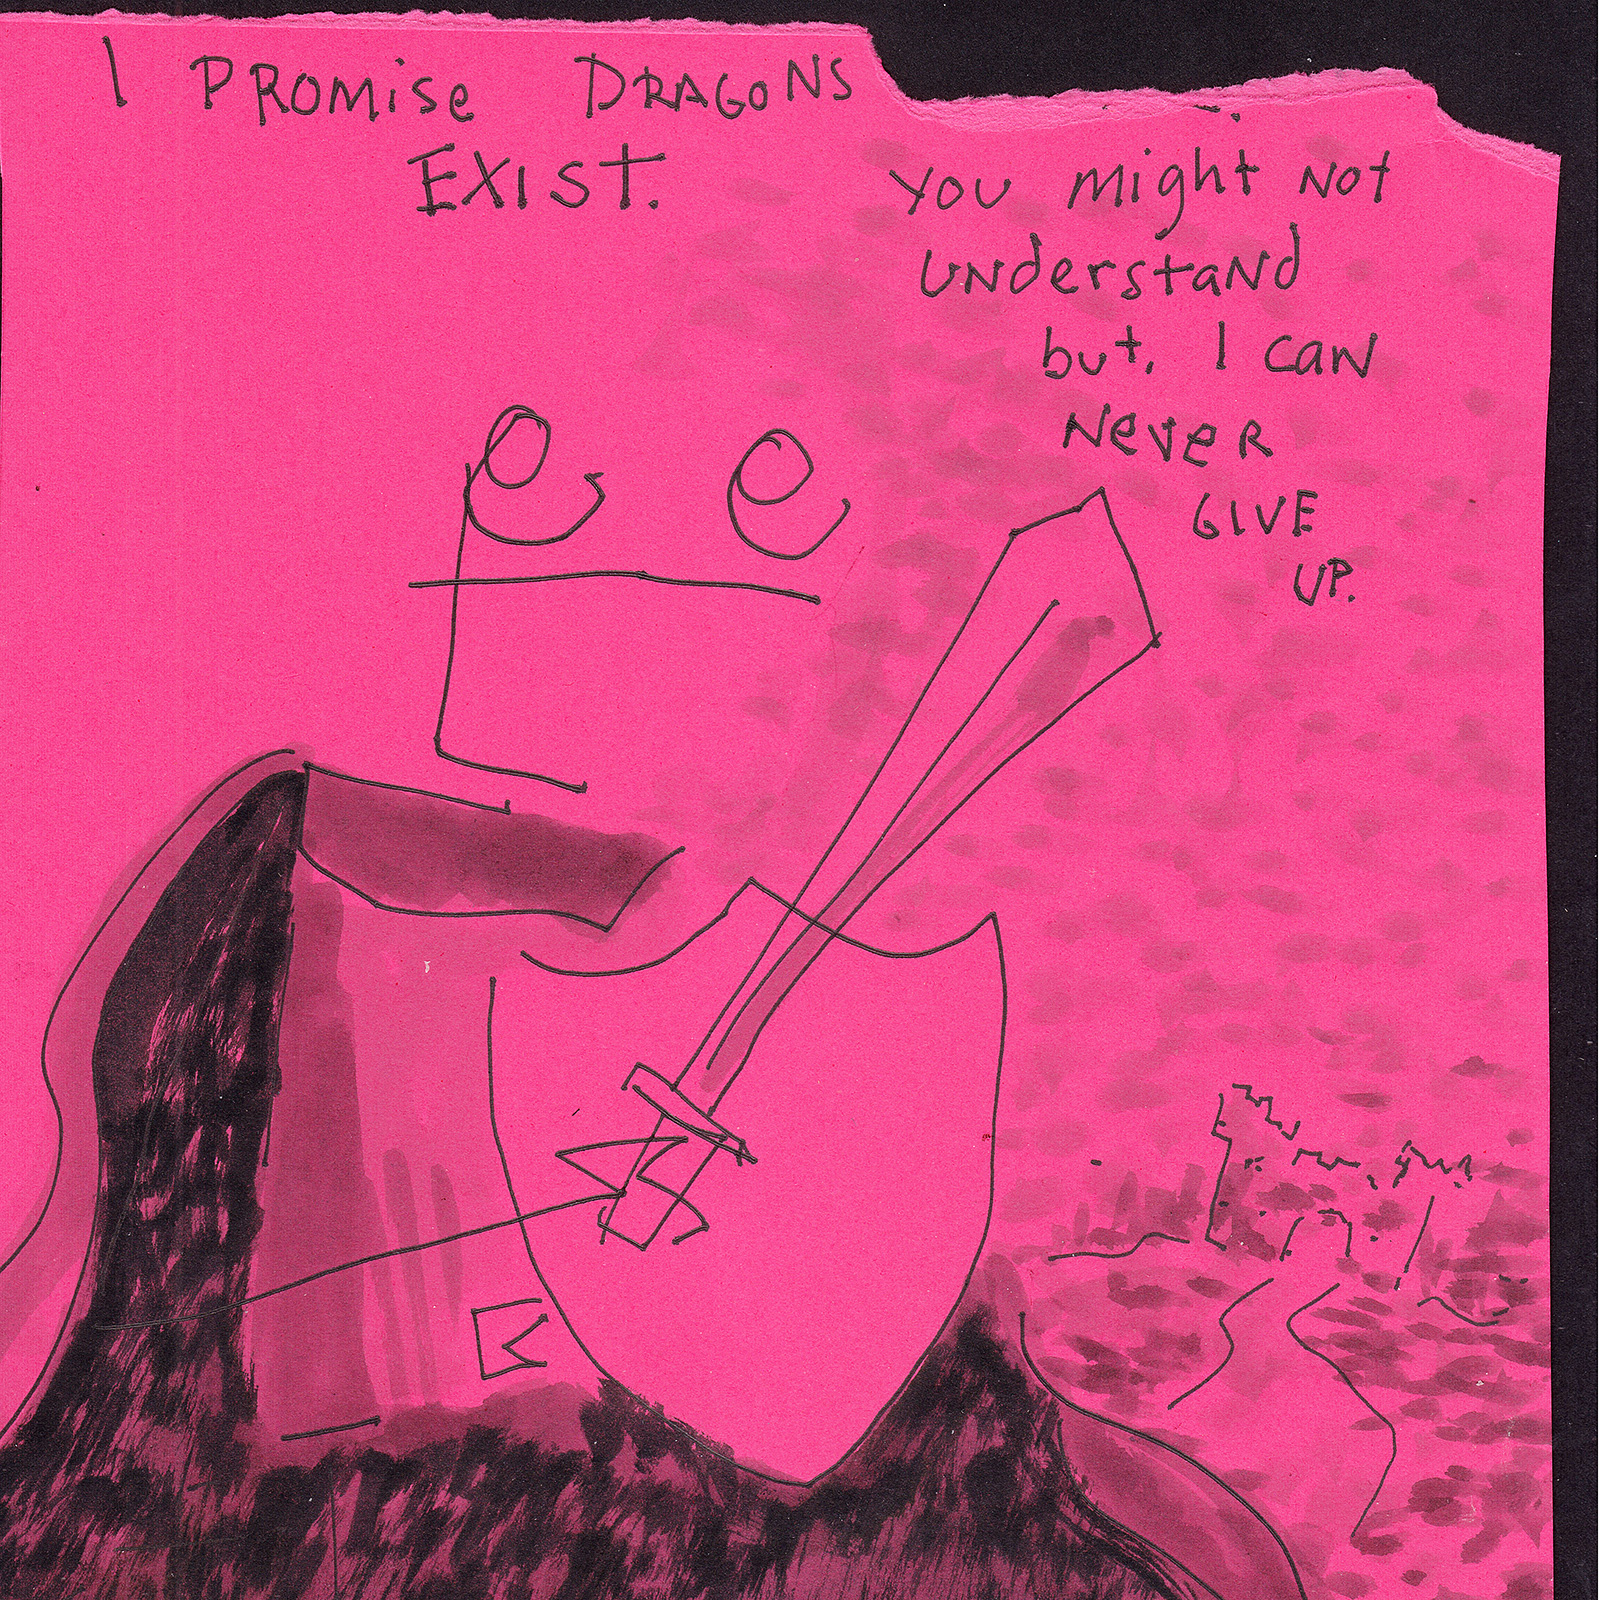 I PROMise DRAGONS
EXIST.
YOU might NOT
UNderstaNd
but. I caN
NeveR
GIVE
UP.